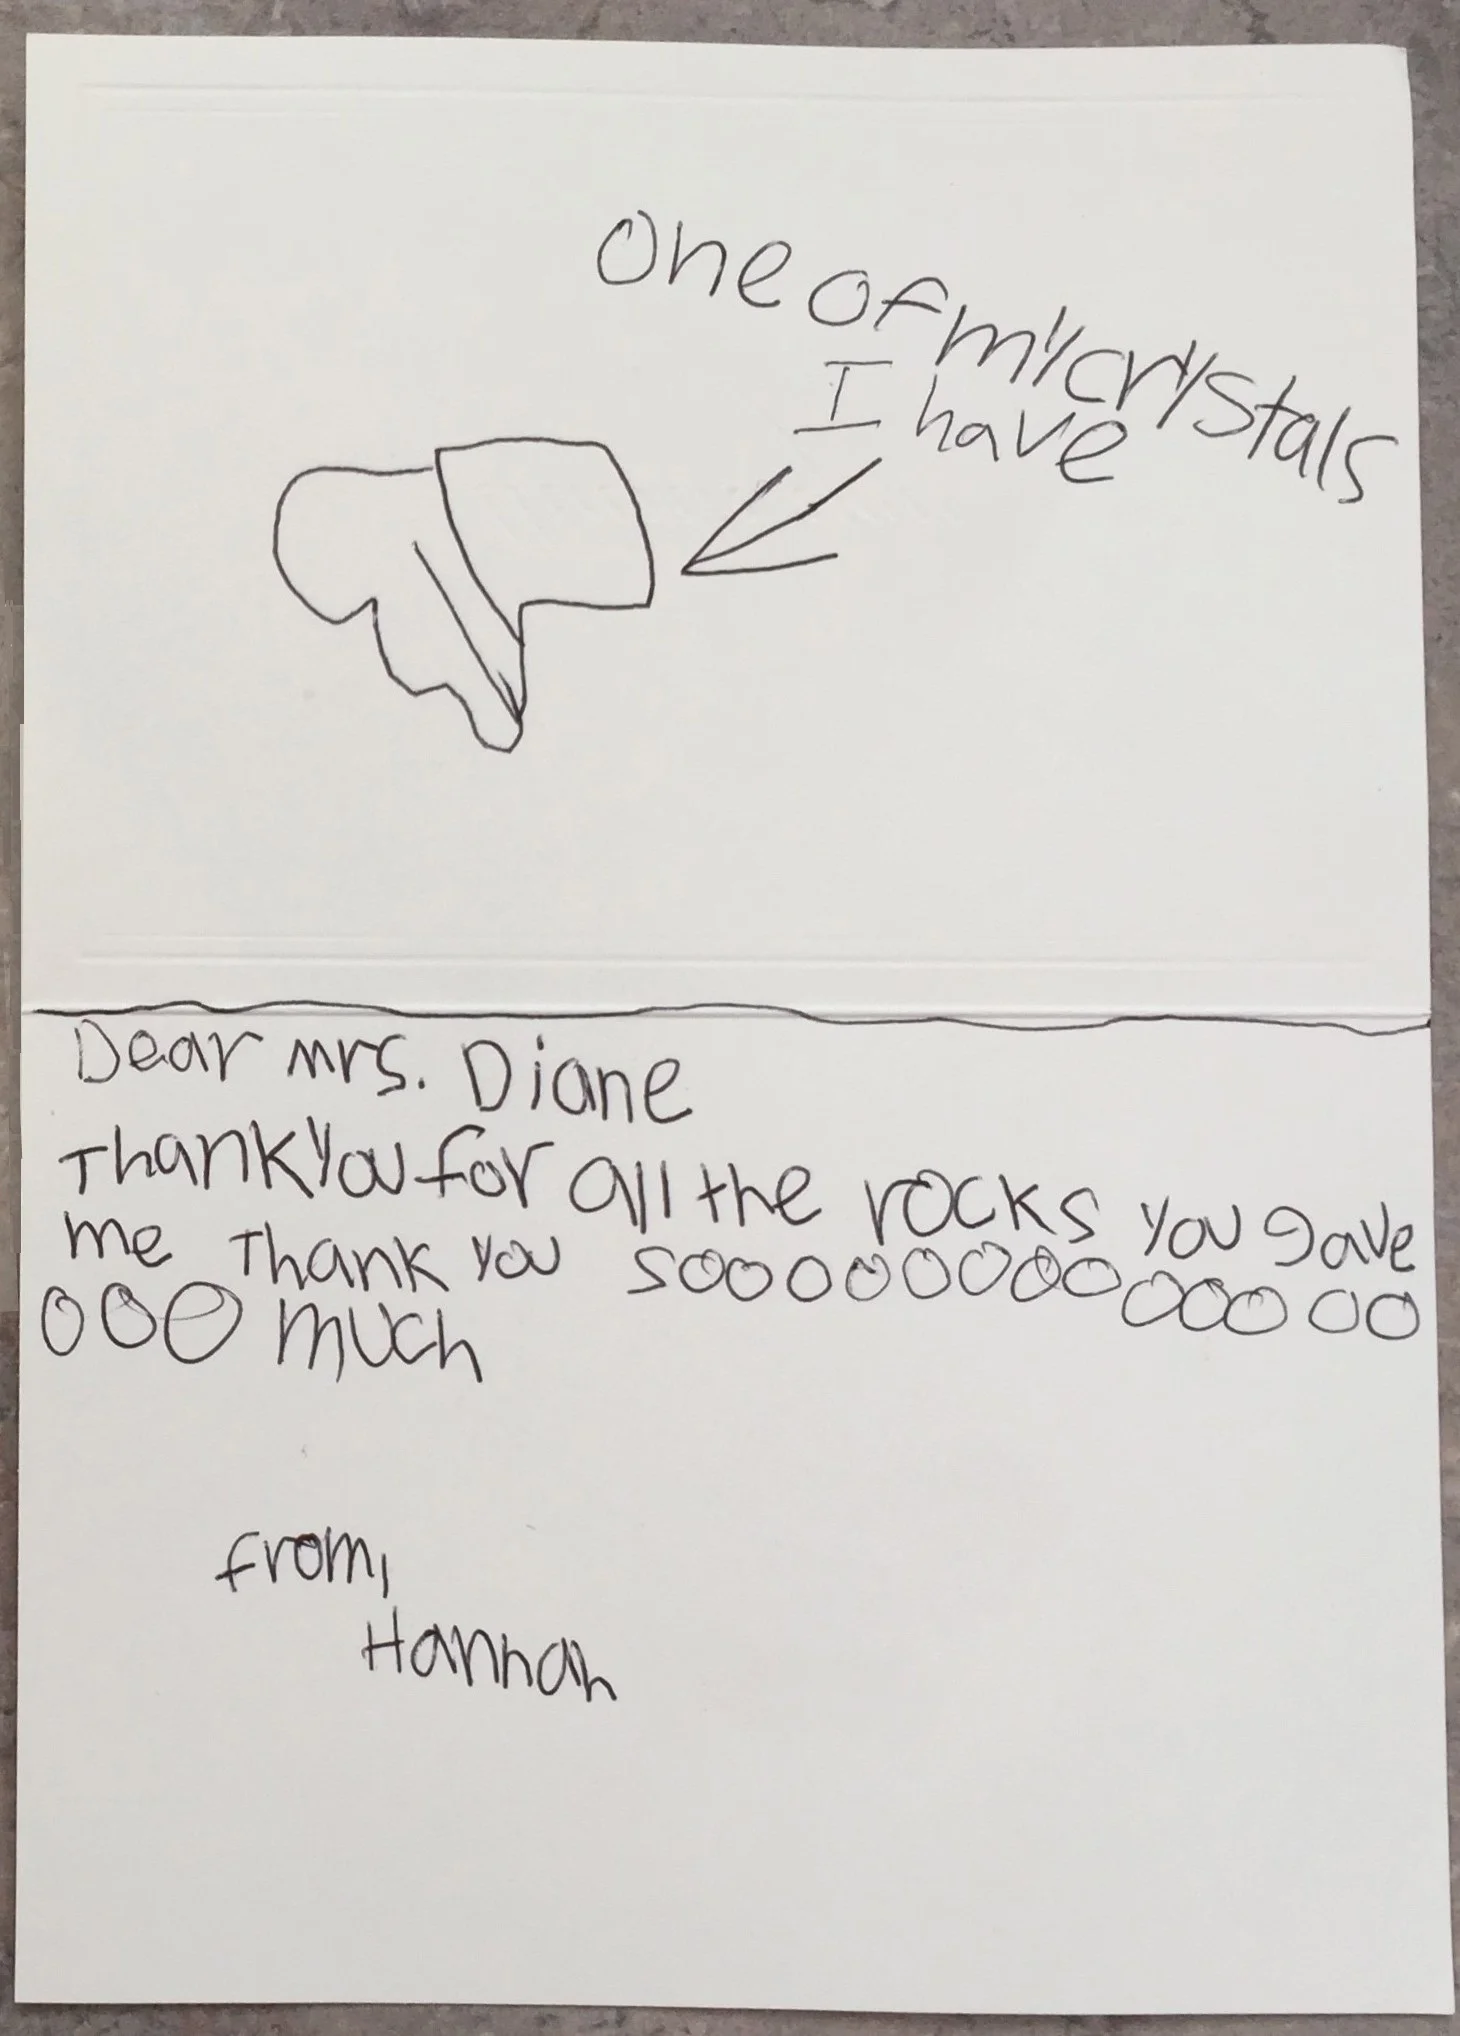 One of my crystals
I have
Dear mrs. Diane
Thank you for all the rocks you gave
me Thank you sooooooooooooo
ooo much
from,
Hannah